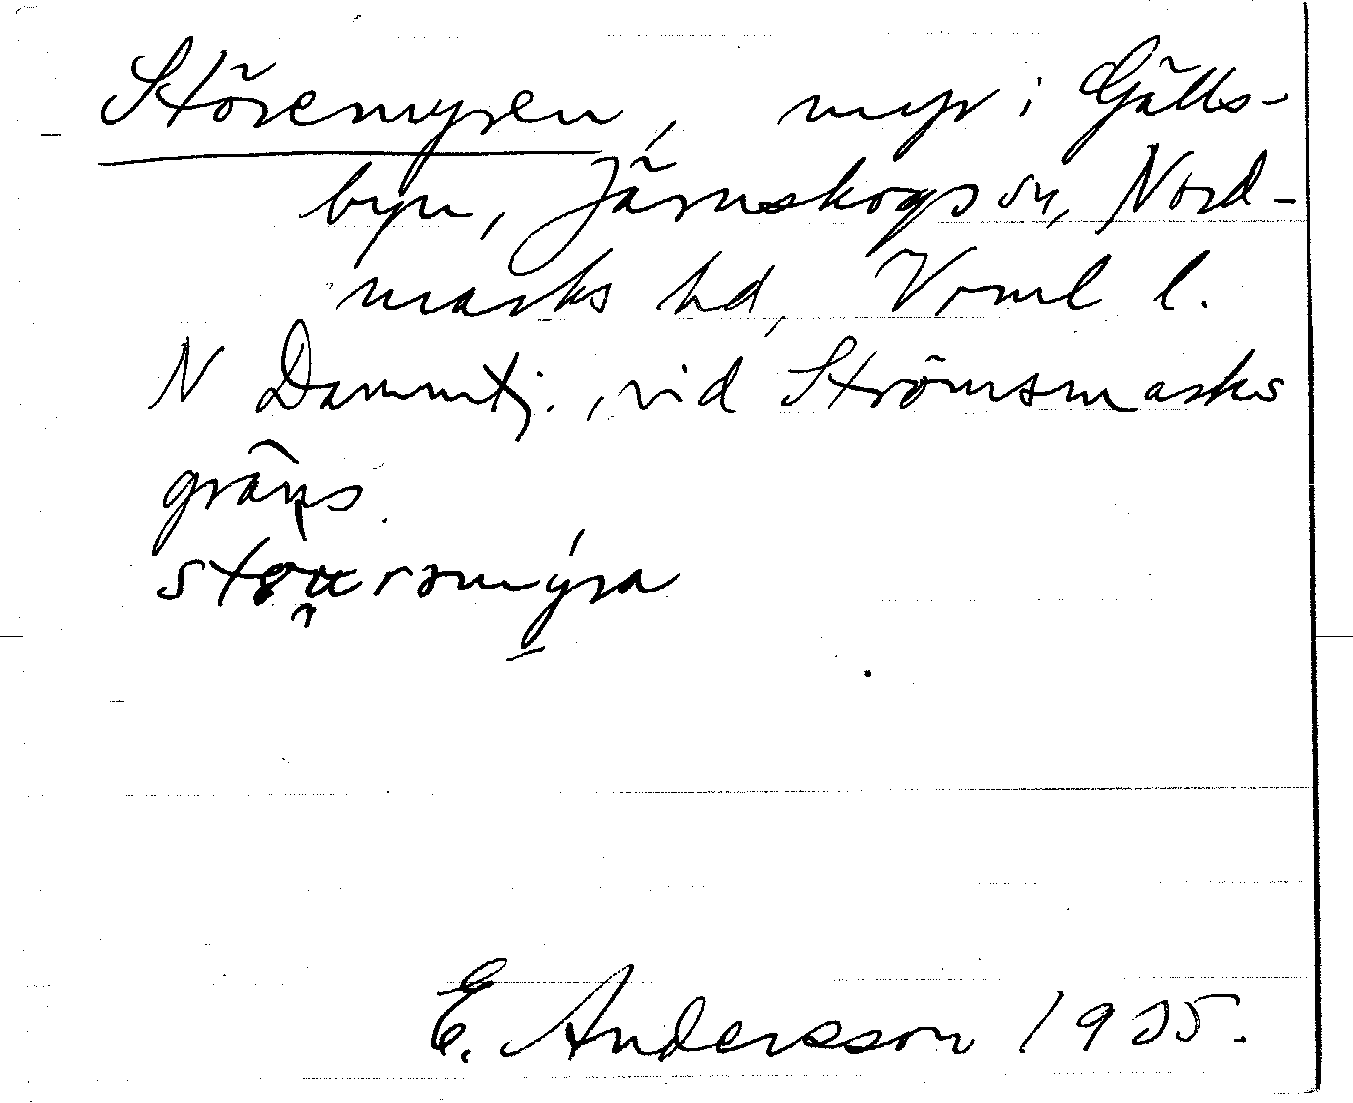 Störemyren, myr i Gälls-
byn, Järnskogs sn, Nord-
marks hd, Vrml l.
N Dammtj., vid Strömsmarks
gräns.
E. Andersson 1935.